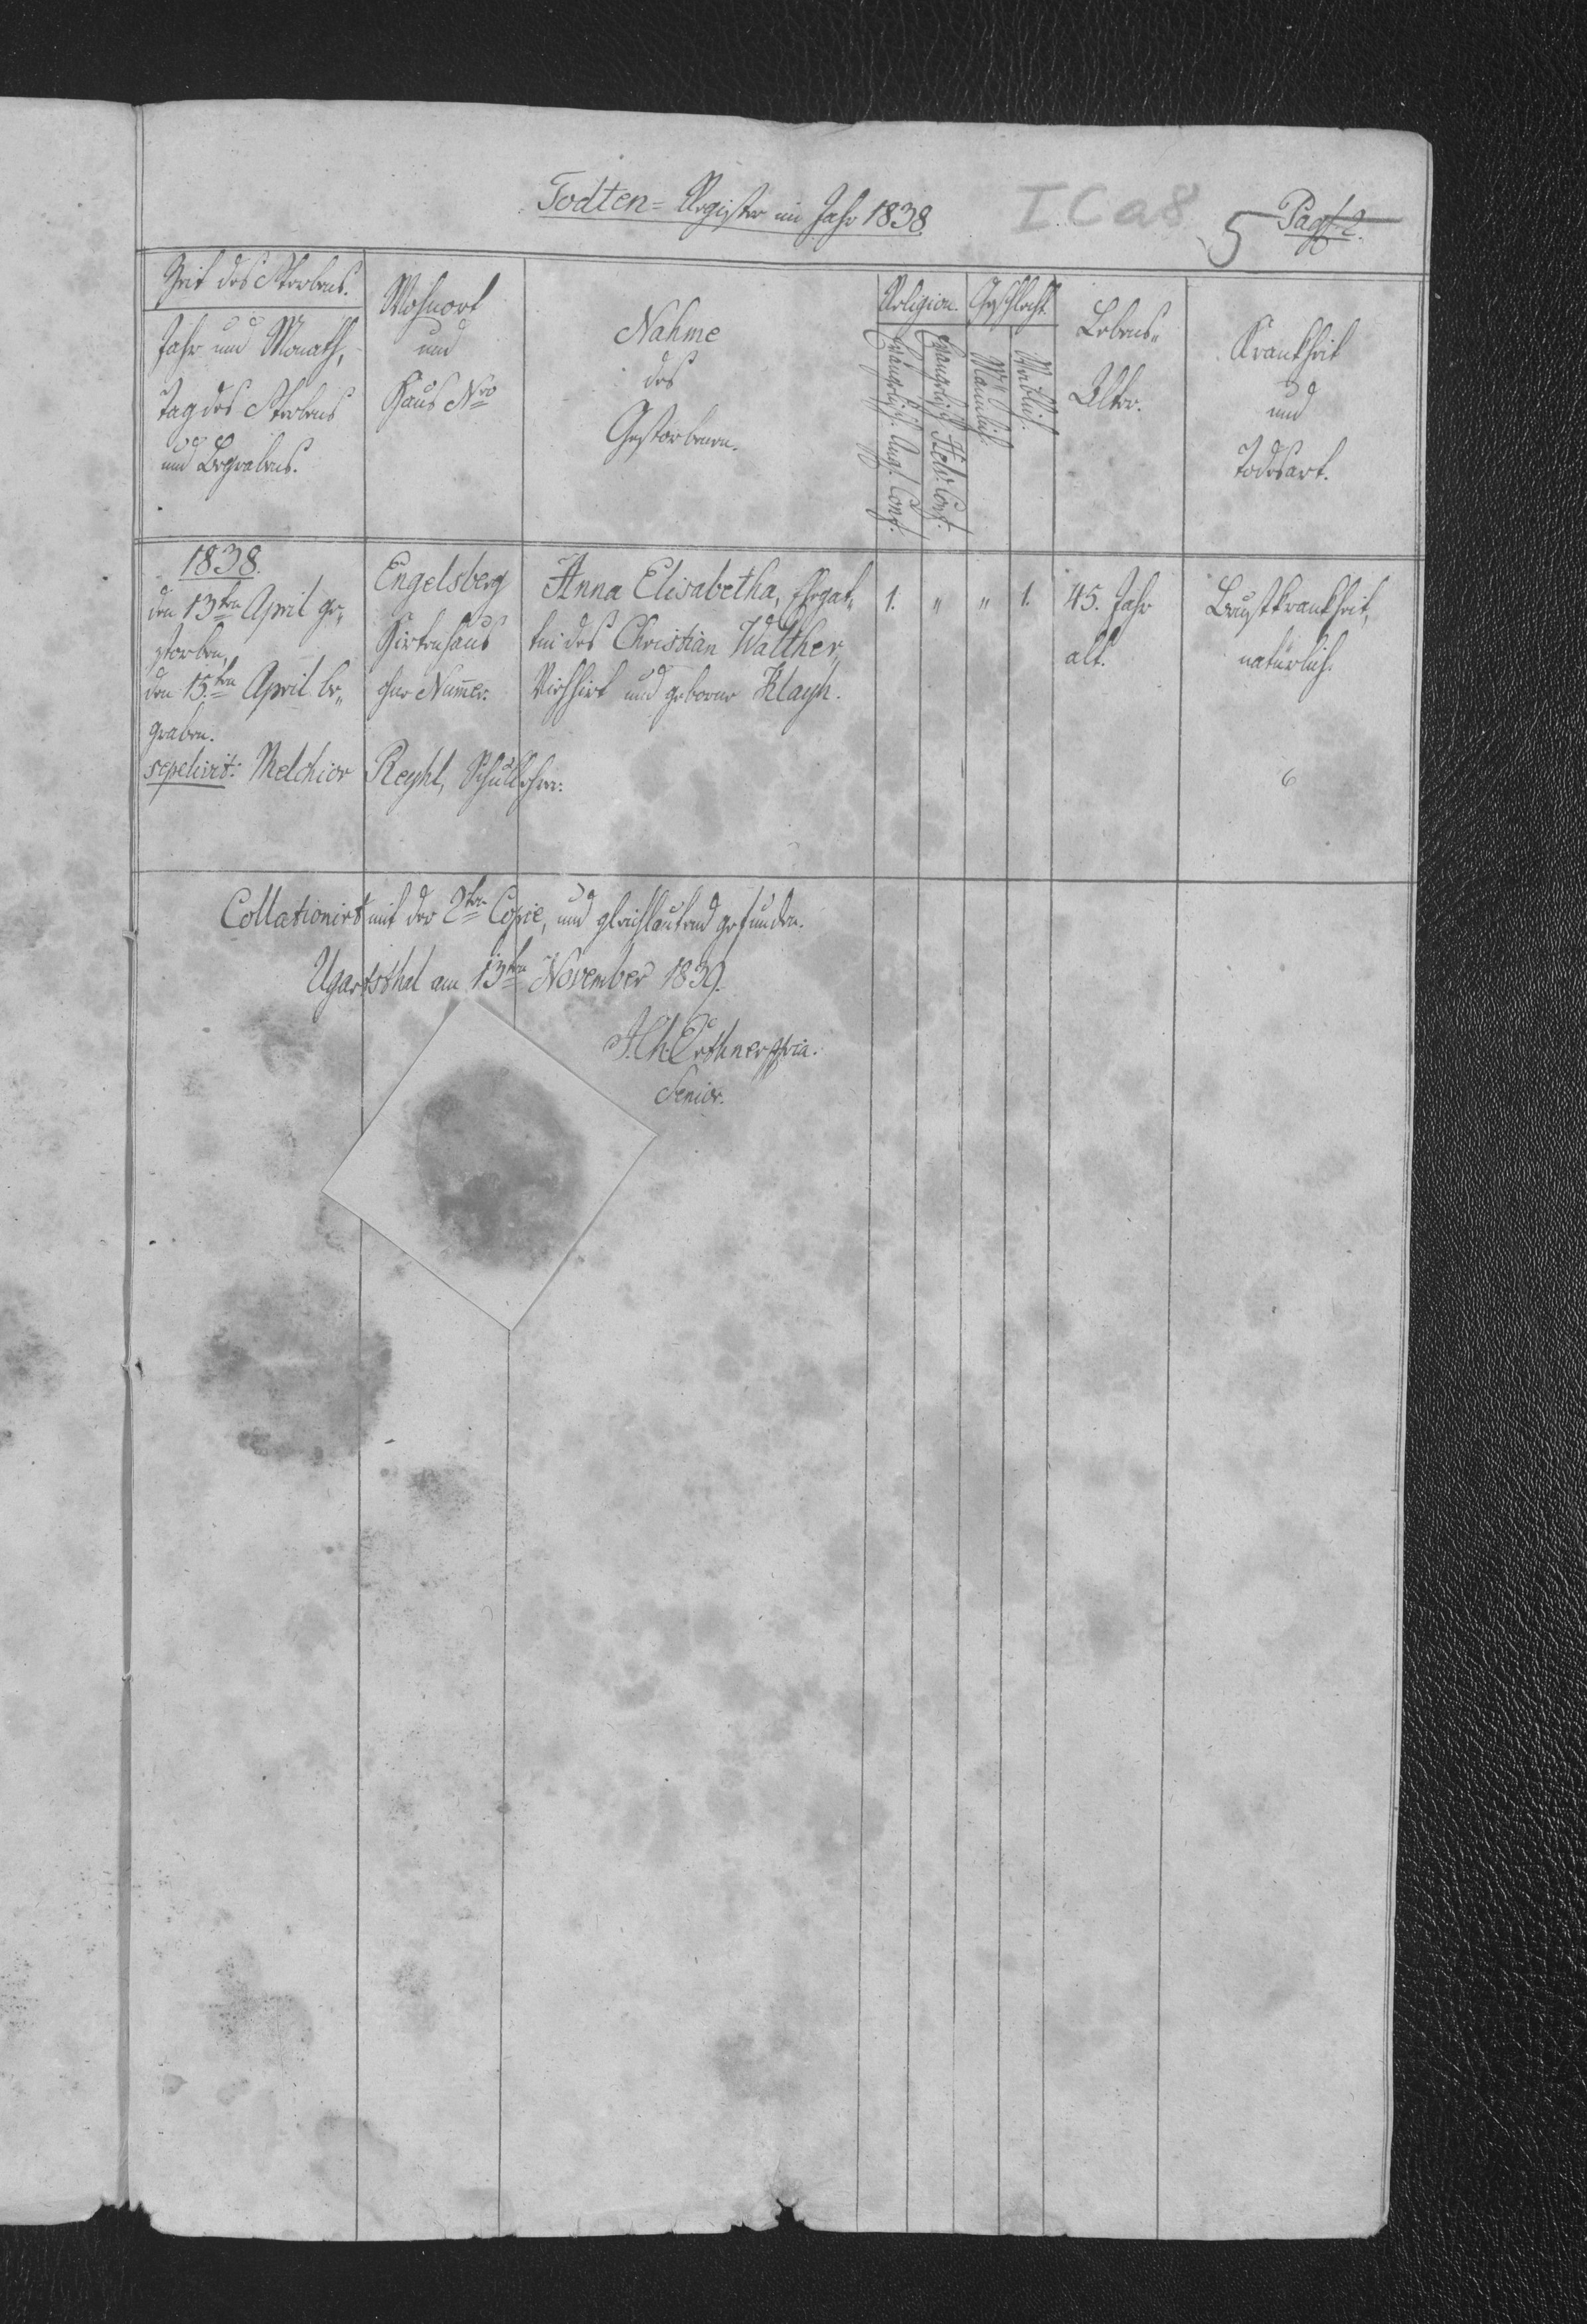 Todten= Register im Jahr 1838
I C a 8
5
Pag: 2.
Zeit des Sterbens.
Jahr und Monath,
Tag des Sterbens
und Begrabens.
Wohnort
und
Haus Nro
Nahme
des
Gestorbenen.
Religion.
Evangelisch. Augs. Conf.
Evangelisch Helv. Conf.
Geschlecht
Männlich.
Weiblich.
Lebens„
Alter.
Krankheit
und
Todesart.
1838.
den 13ten April ge„
storben,
den 15.ten April be„
graben.
Engelsberg
Hirtenhaus
ohne Num̄er.
Anna Elisabetha, Ehegat„
tin des Christian Walther,
Viehhirt und geborne Klayh.
1. „ „ 1.
45. Jahr
alt.
Brustkrankheit,
natürlich.
sepelivit: Melchior Reyhl, Schullehrer.
6
Collationirt mit der 2ten Copie, und gleichlautend gefunden.
Ugartsthal am 13ten November 1839.
Senior.